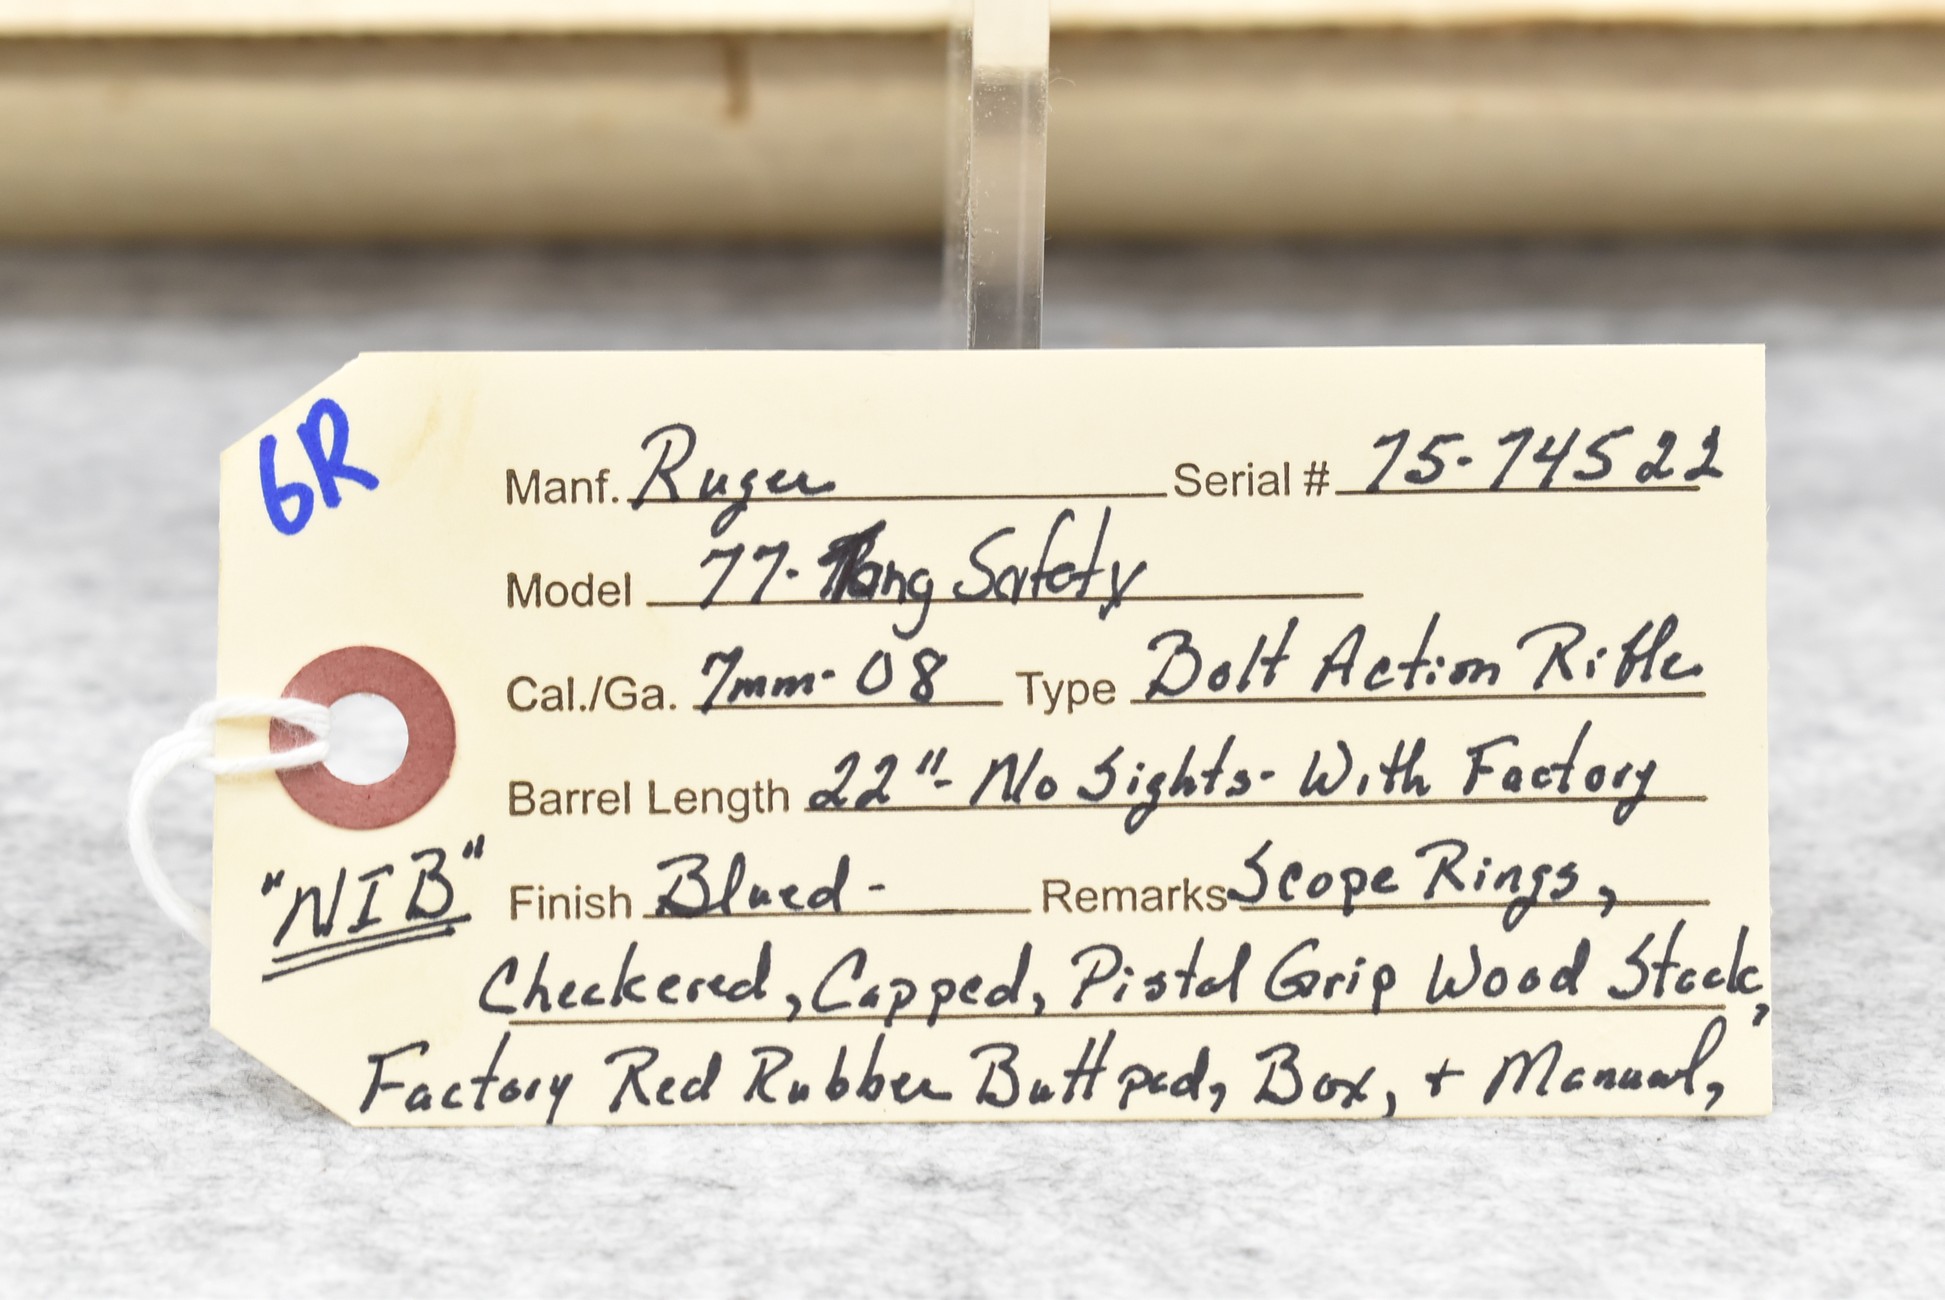 6R
Manf. Ruger Serial # 75-74522
Model 77-Tang Safety
Cal./Ga. 7mm-08 Type Bolt Action Rifle
Barrel Length 22"- No Sights- With Factory
"NIB" Finish Blued - Remarks Scope Rings,
Checkered, Capped, Pistol Grip Wood Stock,
Factory Red Rubber Buttpad, Box, + Manual,